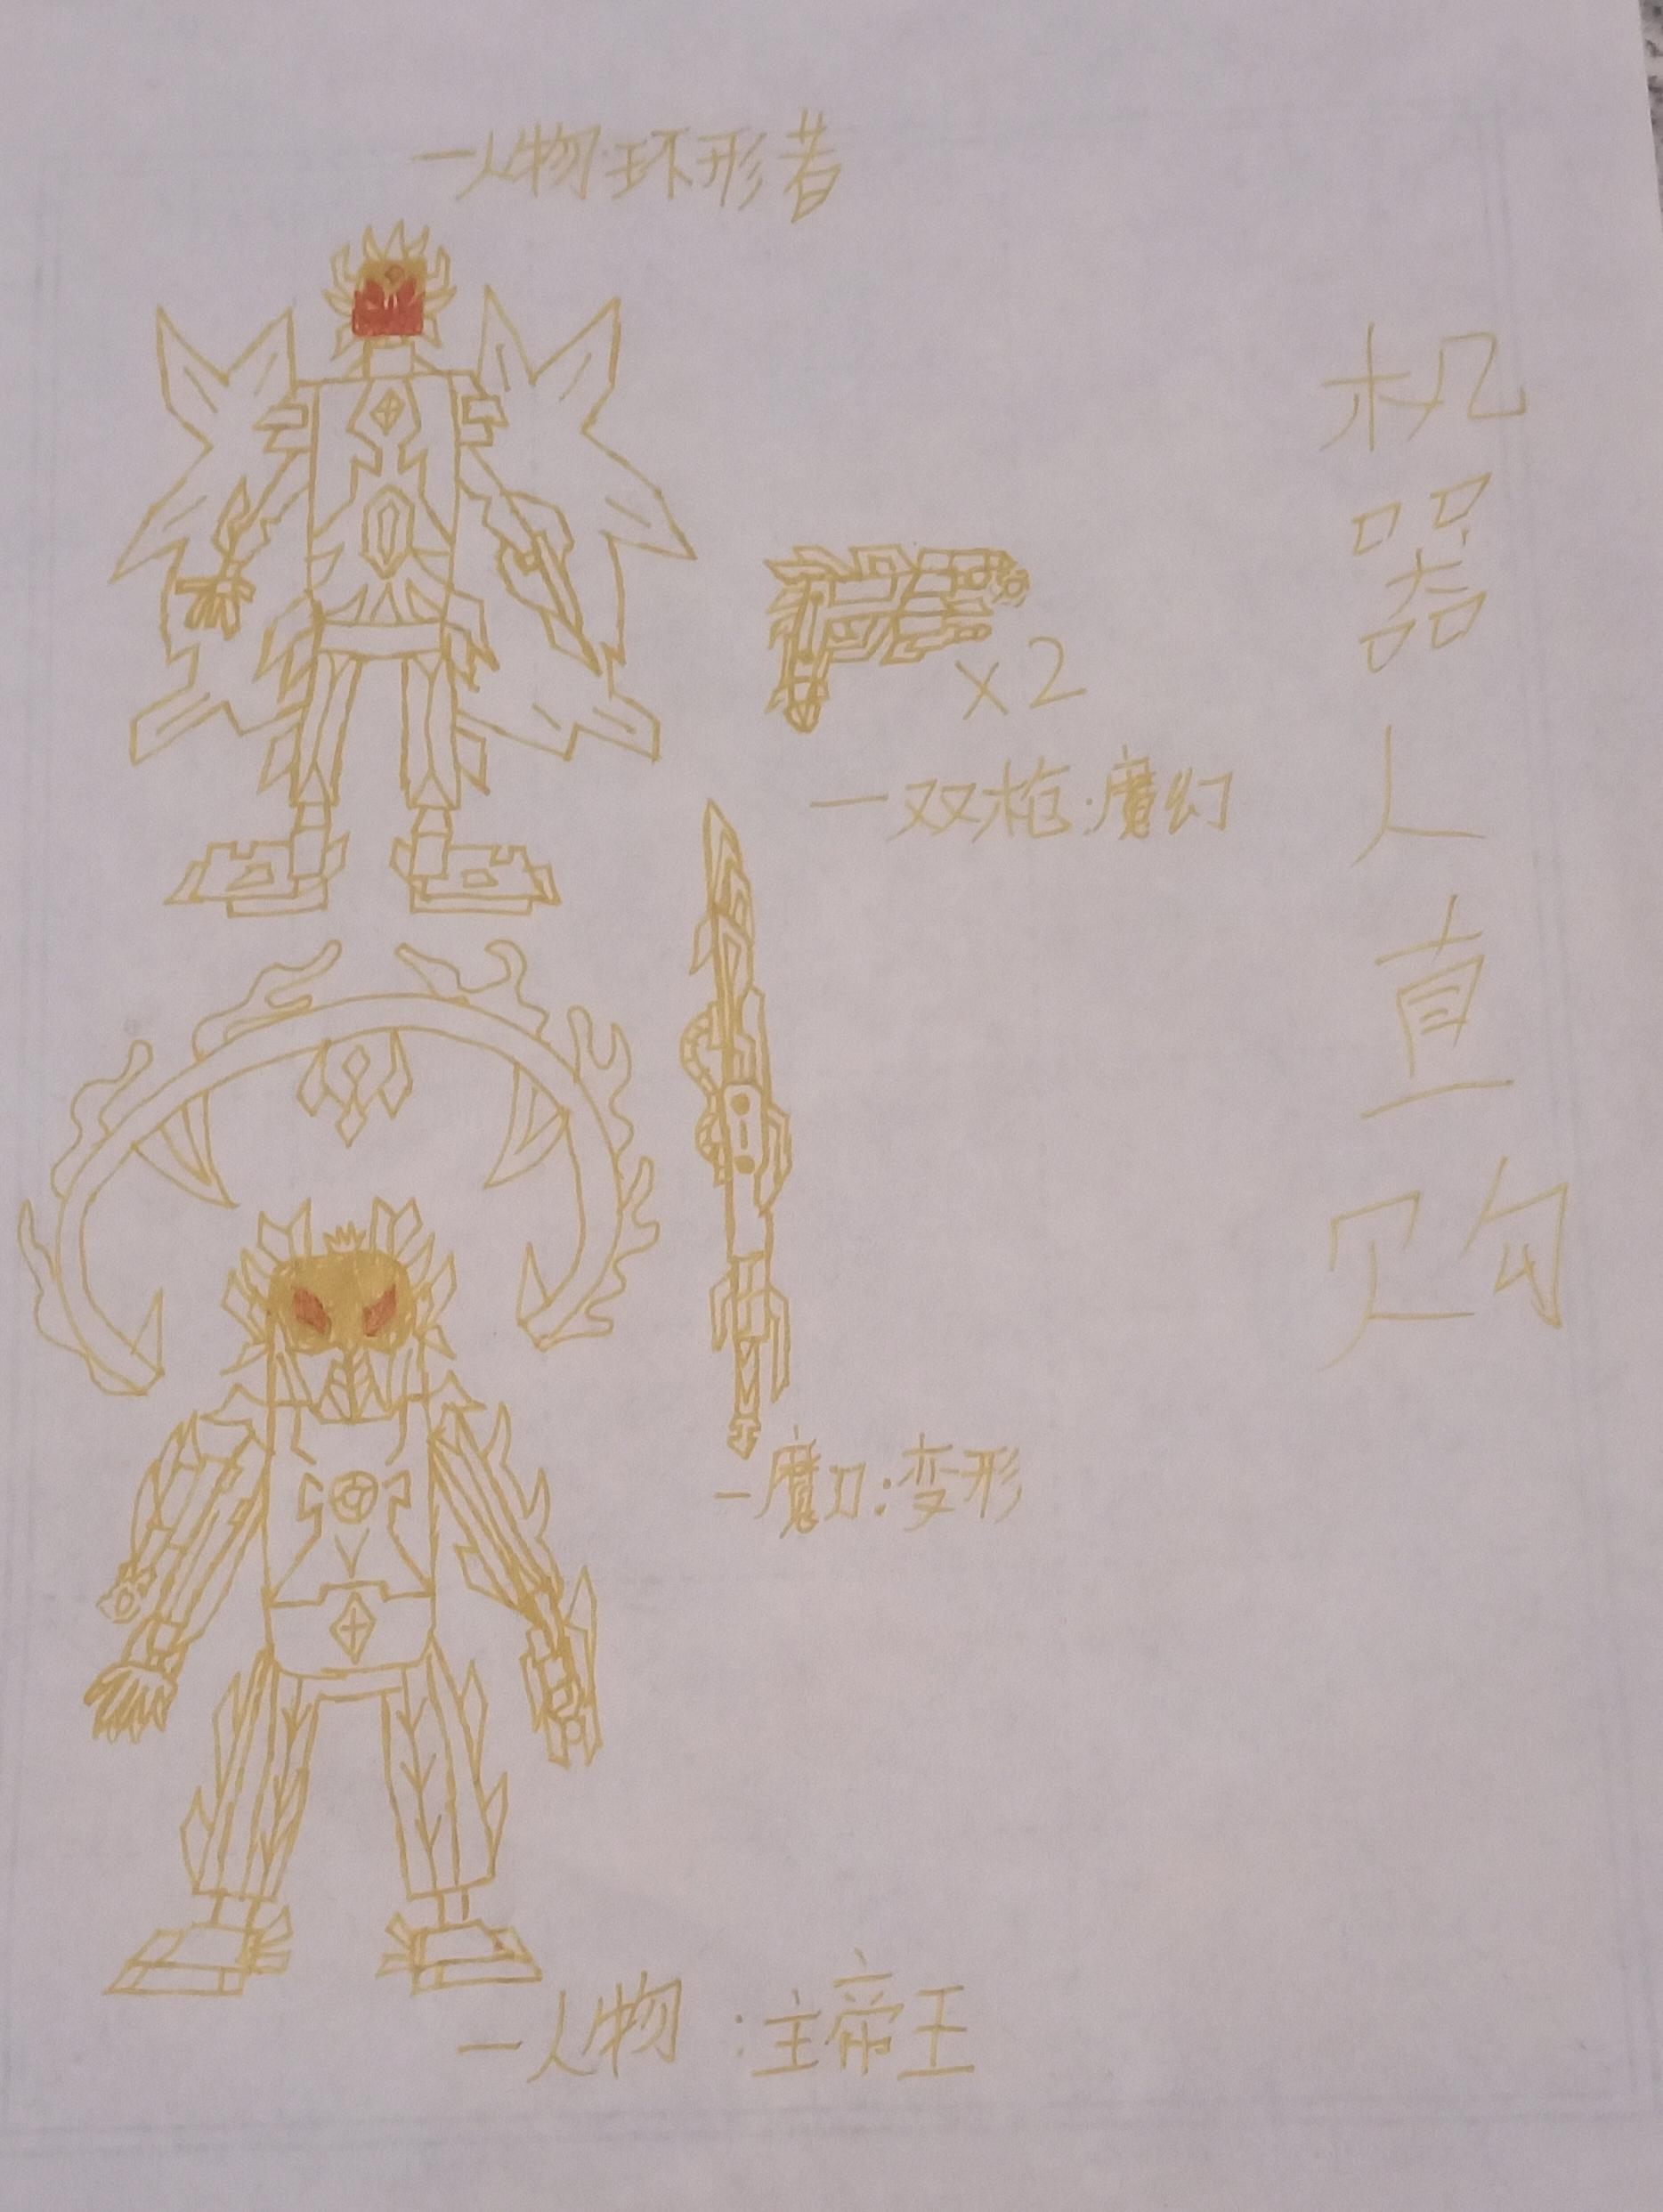 一人物:环形者
x2
一双枪:魔幻
一魔刀:变形
一人物:主帝王
机器人直购